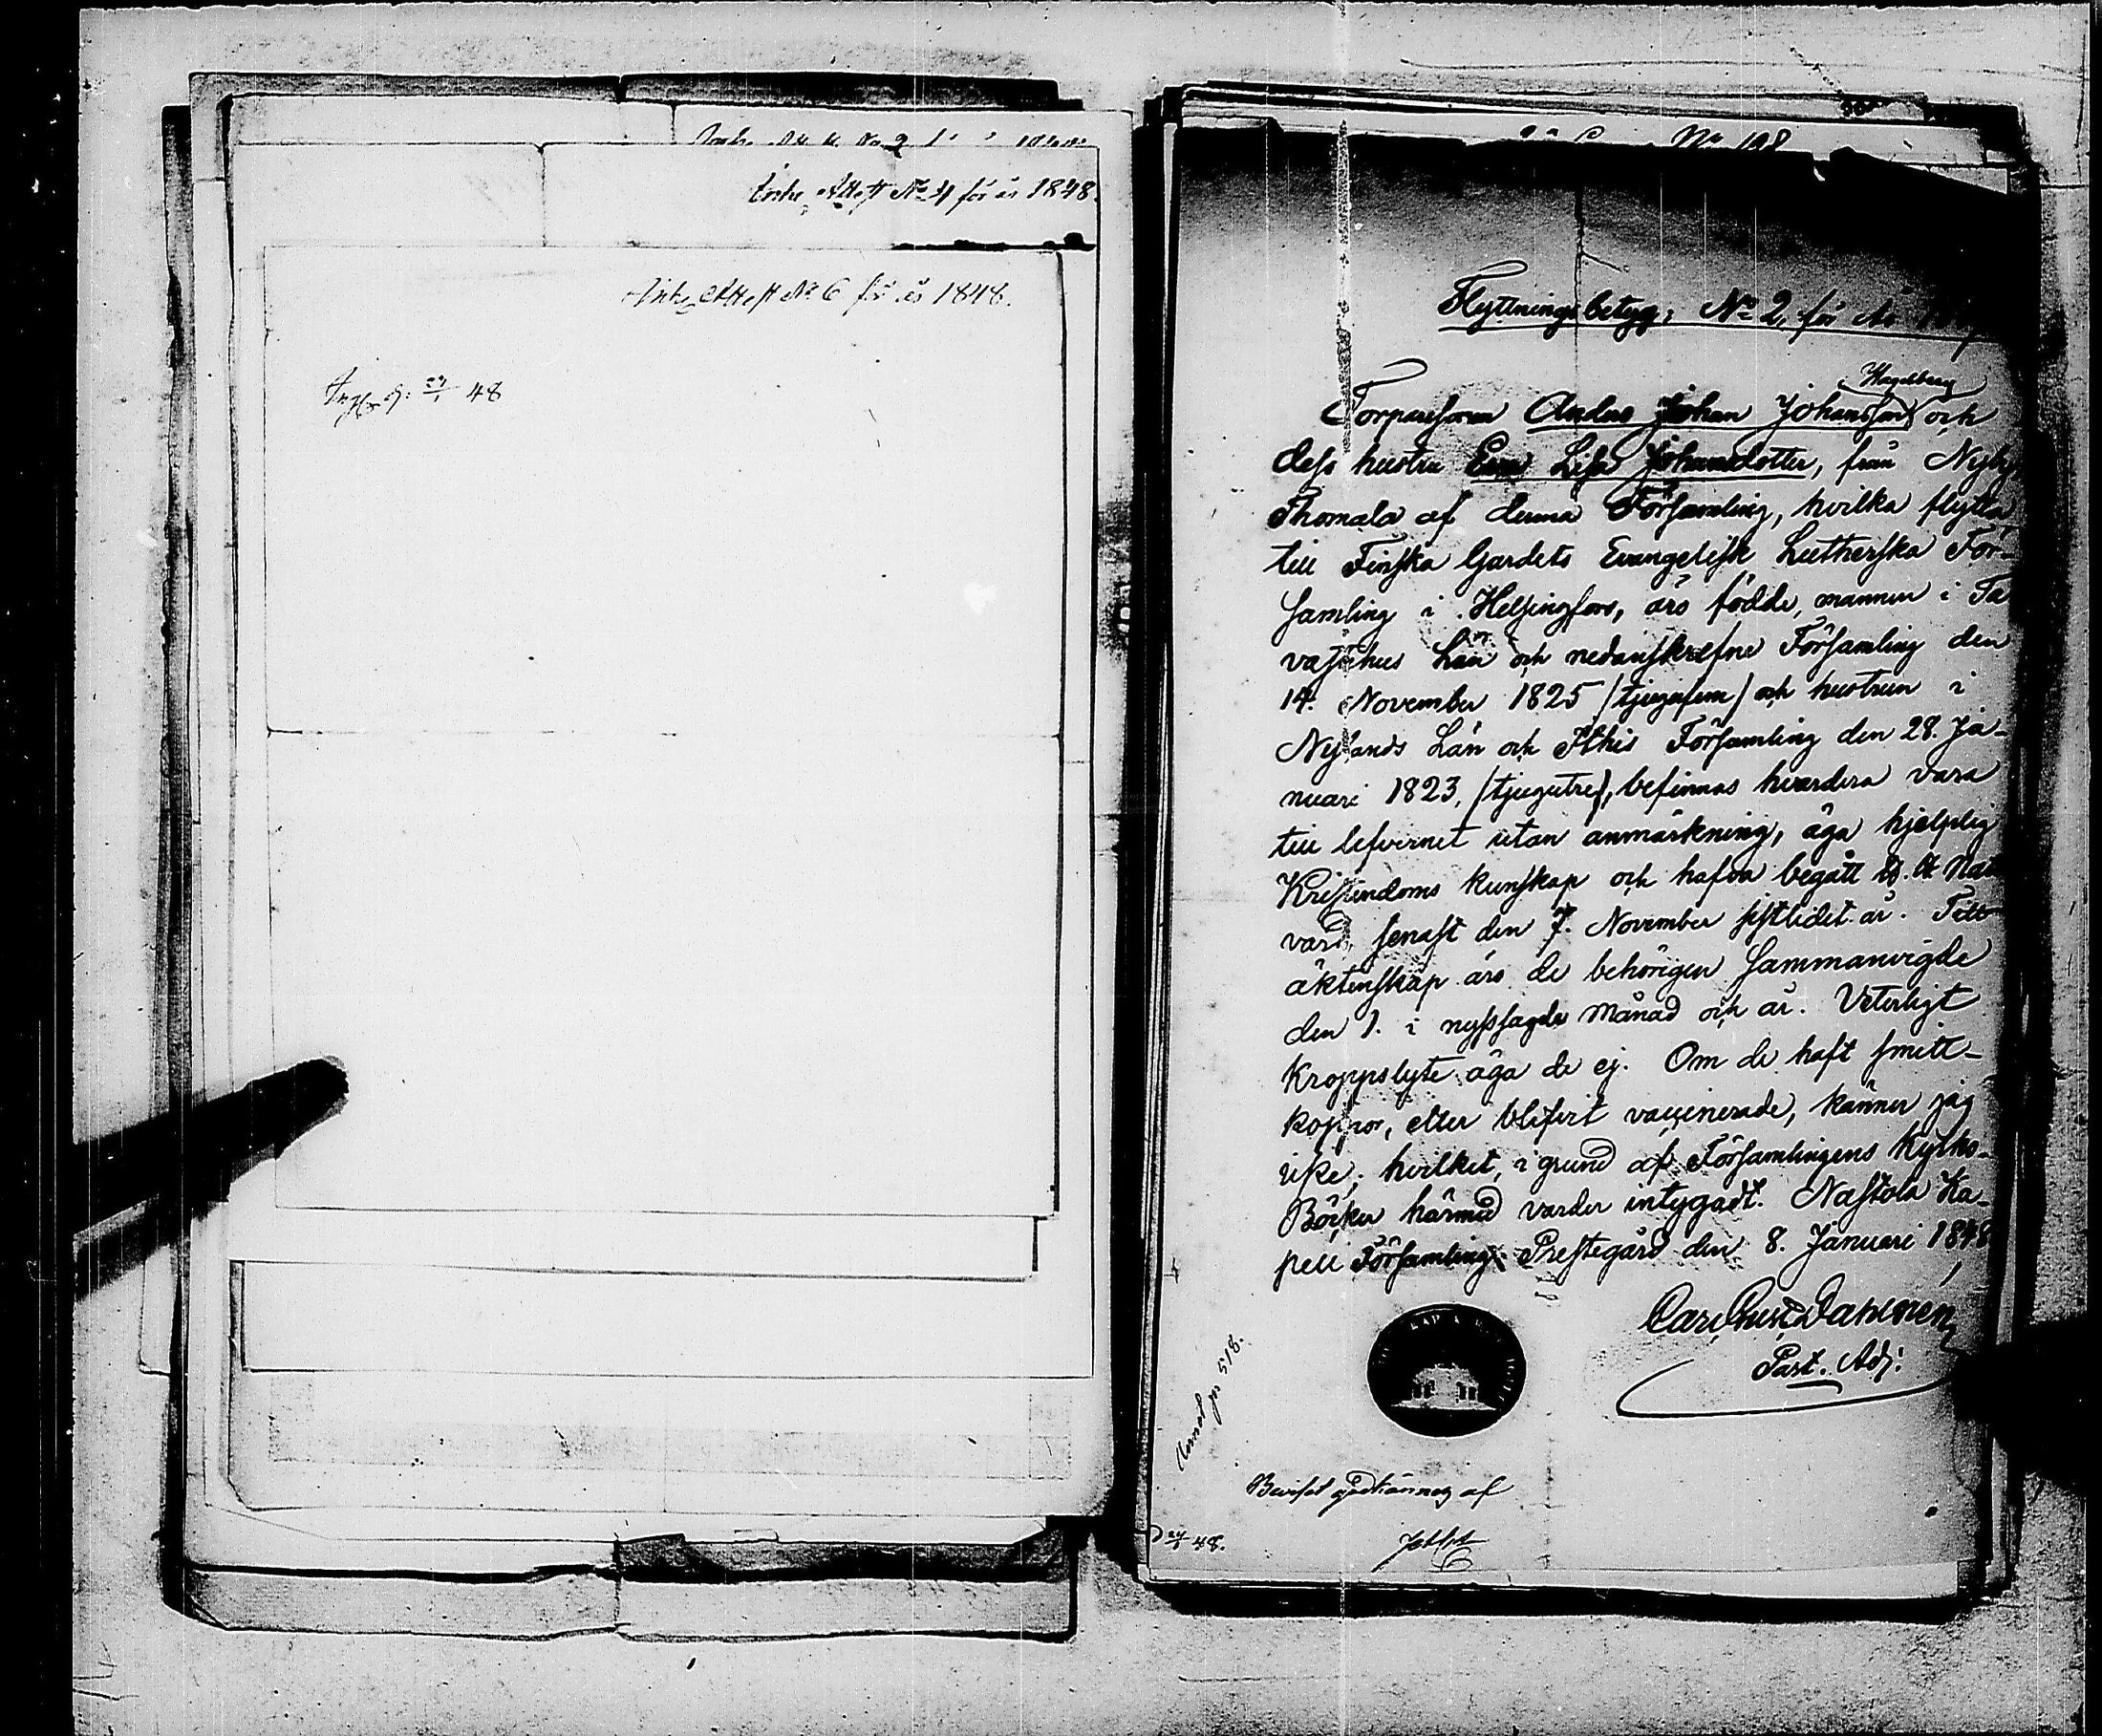 Attest No 4 för år 1848.
Attest No 6 för år 1848.
48
No 108
Flyttningsbetyg; No 2, för År
Hagelberg
Torparesonen Anders Johan Johansson och
dess hustru Eva Lisa Johansdotter, från Nyby
Thomala af denna Församling, hvilka flytta
till Finska Gardets Evangelisk Lutherska För-
samling i Helsingfors, äro födde, mannen i Ta
vastehus Län och nedanskrefne Församling den
14. November 1825 /tjugufem/ och hustrun i
Nylands Län och Itthis Församling den 28. Ja-
nuari 1823, /tjugutre/, befinnas hvardera vara
till lefvernet utan anmärkning, äga hjelplig
Kristendoms kunskap och hafva begått H. H. Natt
vard, senast den 7. November sistlidet år. Till
äktenskap äro de behörigen sammanvigde
den 1. i nyssagde månad och år. Veterligt
kroppslyte äga de ej. Om de haft smitt-
koppor, eller blifvit vaccinerade, känner jag
icke, hvilket, i grund af Församlingens Kyrko-
Böcker härmed varder intygadt. Nastola Ka-
pell Församlings Prestegård den 8. Januari 1848
Carl Gust Dahlmén
Past. Adj:
518.
Beviset godkännes af
48.